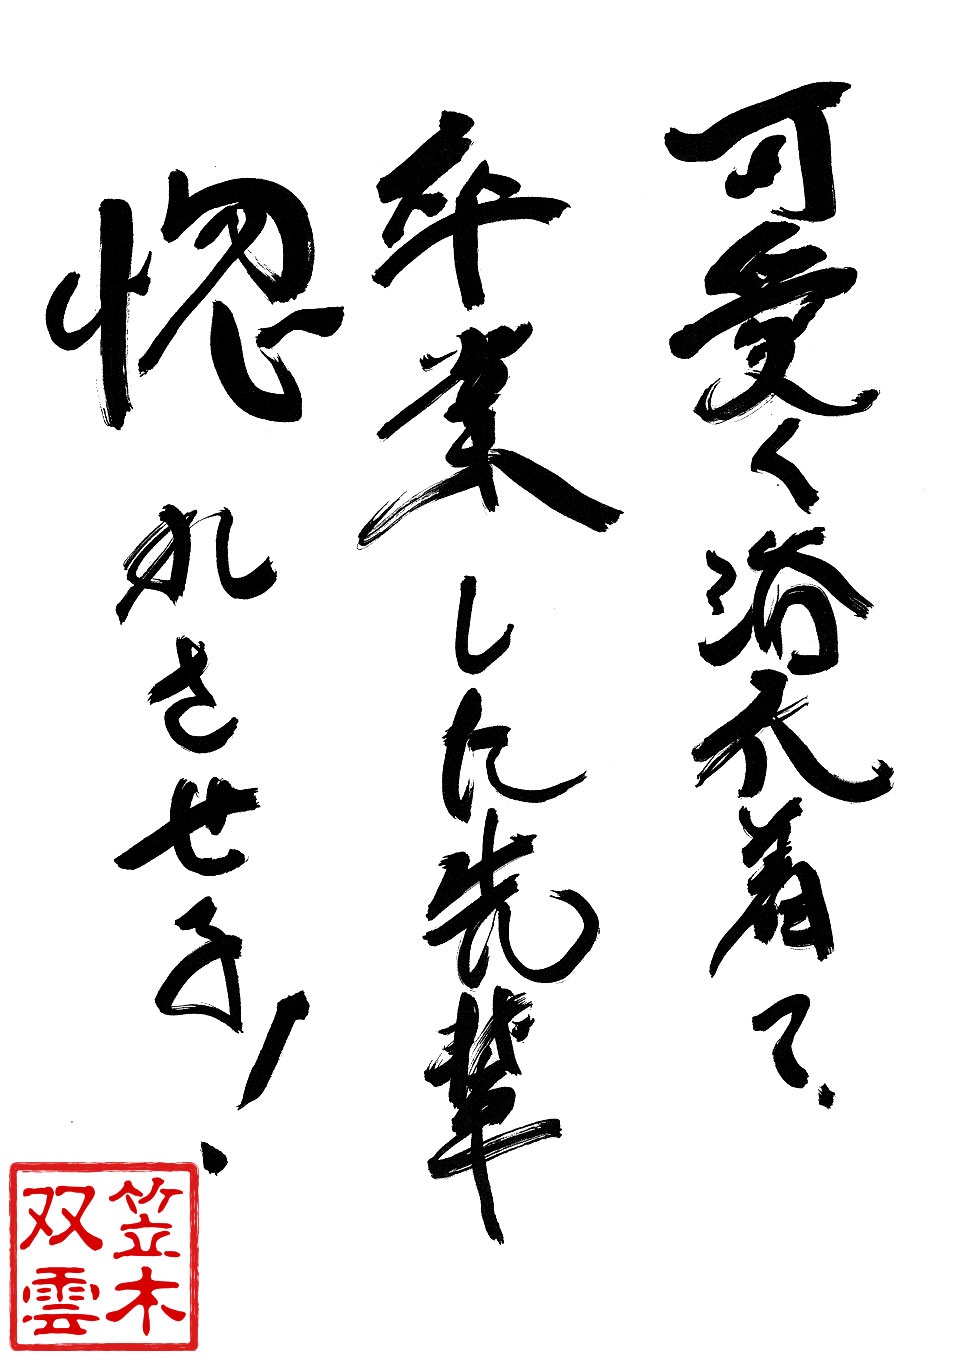 可愛く浴衣着て、
卒業した先輩
惚れさせ子!
笠木
双雲